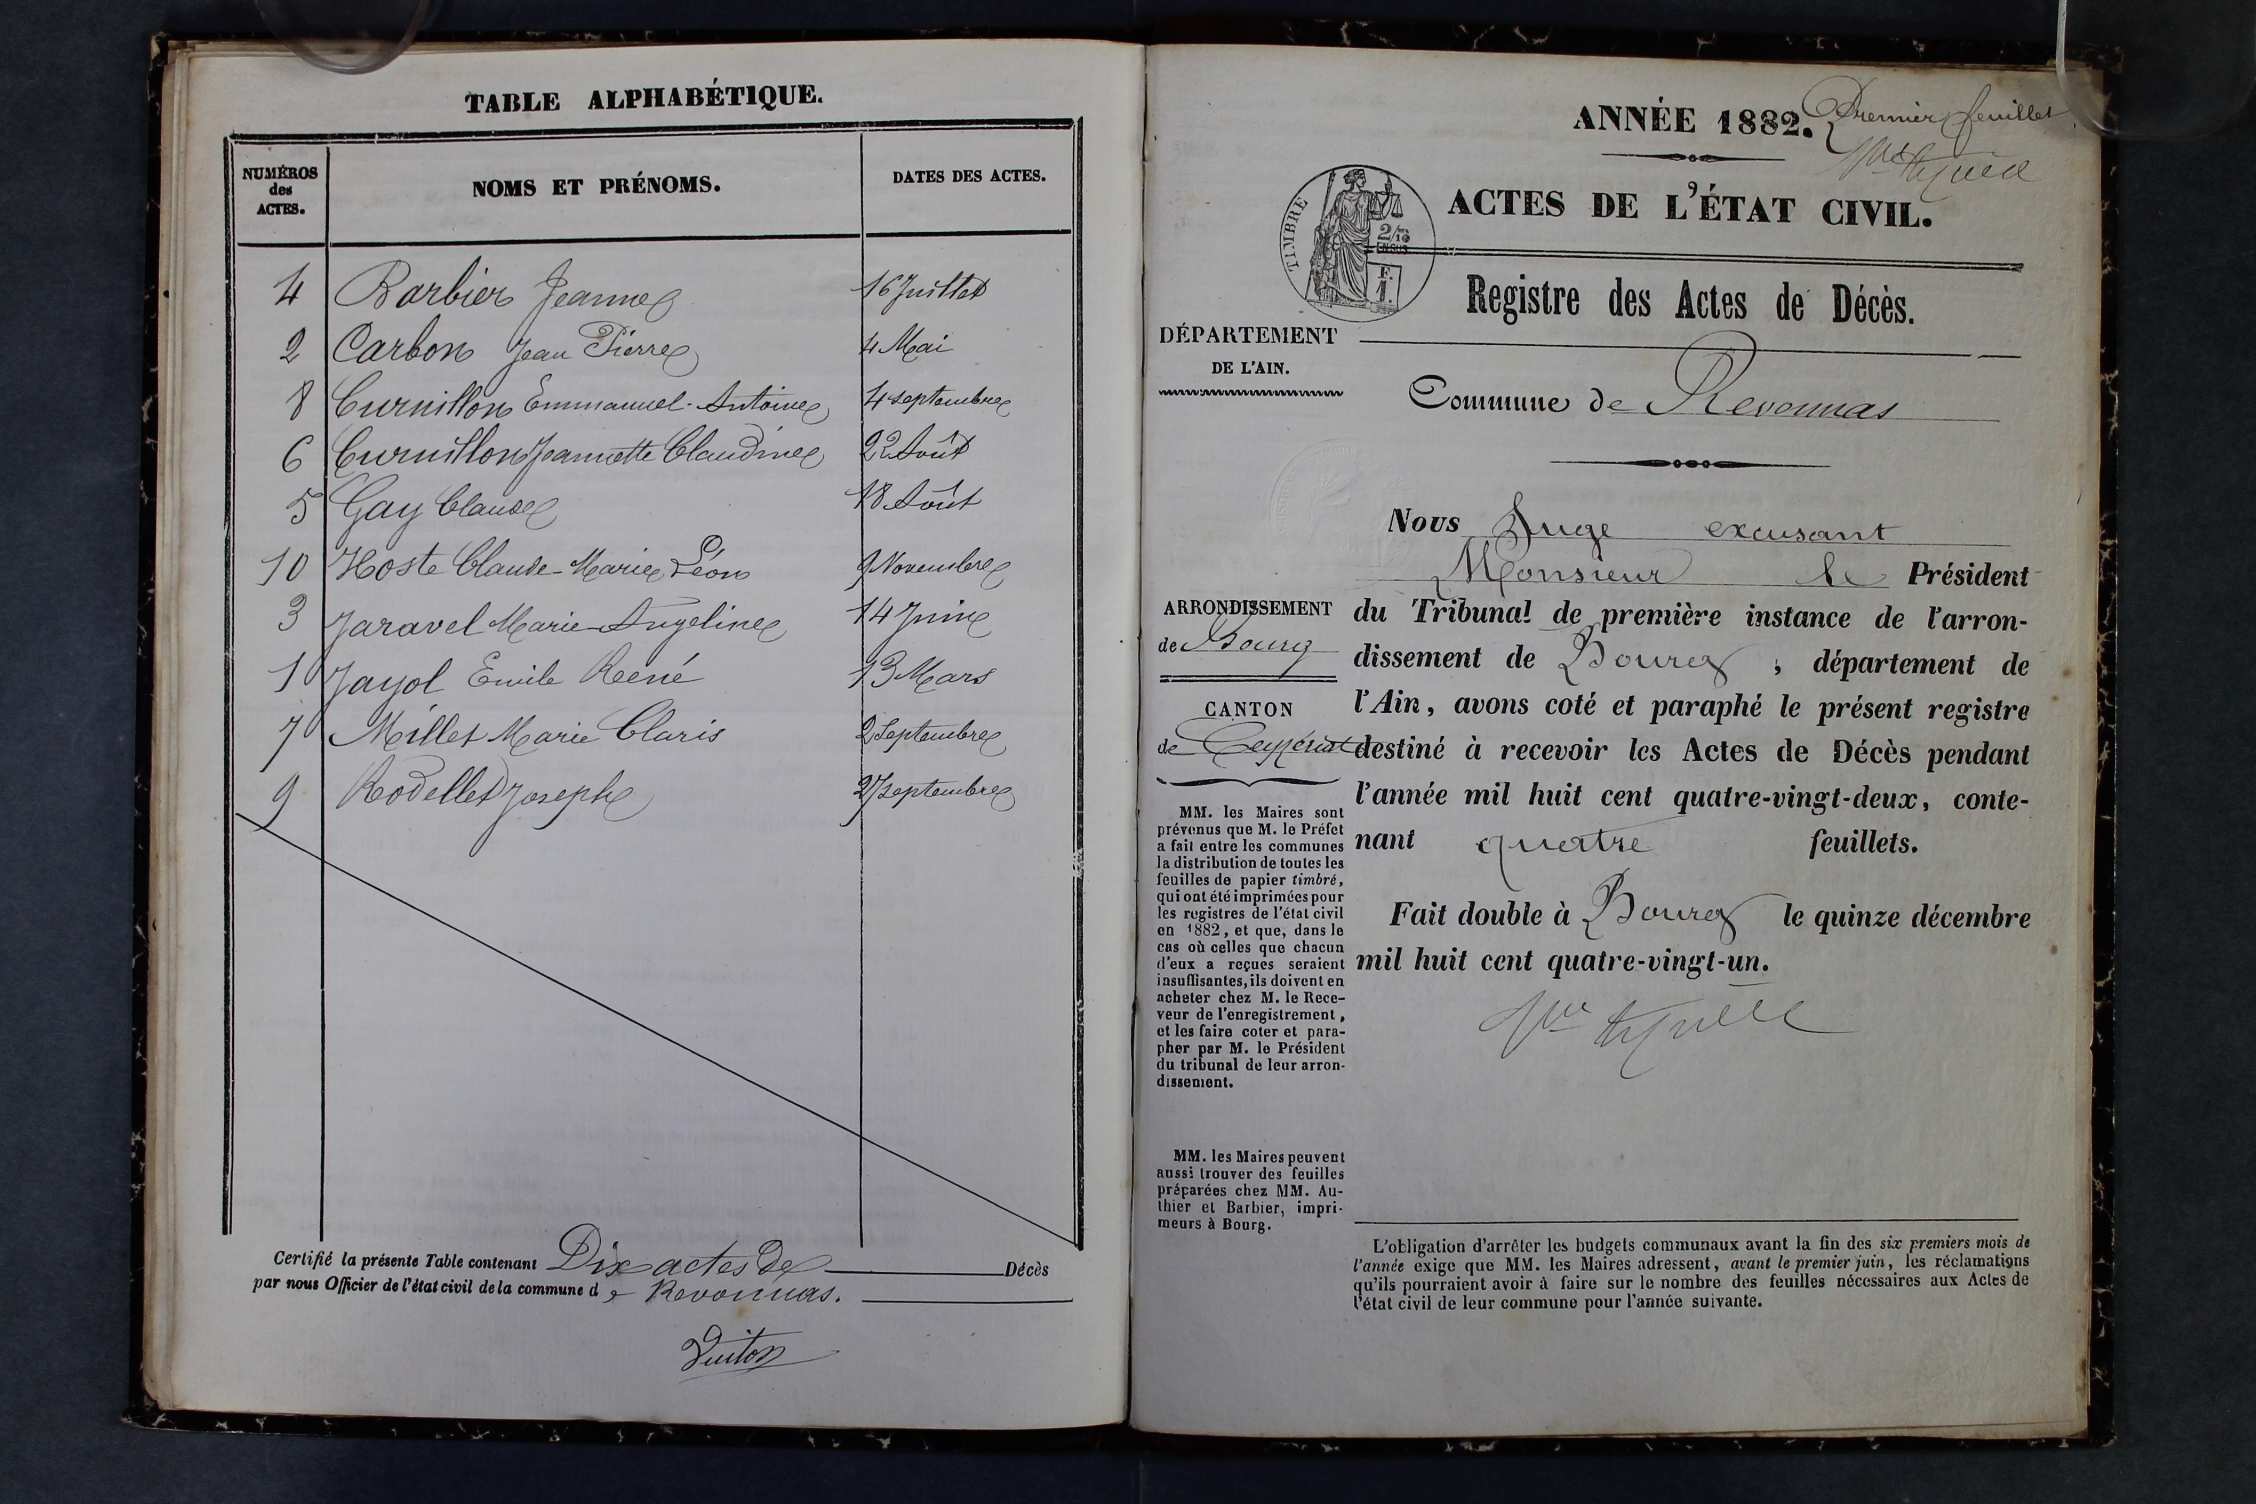 TABLE ALPHABÉTIQUE.
NUMÉROS
des
ACTES.
NOMS ET PRÉNOMS.
DATES DES ACTES.
4 Barbier Jeanne 16 Juillet
2 Carbon Jean Pierre 4 Mai
8 Curnillon Emmanuel-Antoine 4 septembre
6 Curnillon Jeannette Claudine 22 Août
5 Gay Claude 18 Août
10 Hoste Claude-Marie Léon 9 Novembre
3 Jaravel Marie-Angeline 14 Juin
1 Jayol Emile René 13 Mars
7 Millet Marie Claris 2 Septembre
9 Rodellet Joseph 27 septembre
Certifié la présente Table contenant Dix actes de Décès
par nous Officier de l'état civil de la commune de Revonnas.
Vuiton
ANNÉE 1882.
Premier feuillet
ACTES DE L'ÉTAT CIVIL.
TIMBRE
2/10
EN SUS
F.
1.
Registre des Actes de Décès.
DÉPARTEMENT
DE L'AIN.
Commune de Revonnas
Nous Juge excusant
Monsieur le Président
du Tribunal de première instance de l'arron-
dissement de Bourg ; département de
l'Ain, avons coté et paraphé le présent registre
destiné à recevoir les Actes de Décès pendant
l'année mil huit cent quatre-vingt-deux, conte-
nant quatre feuillets.
Fait double à Bourg le quinze décembre
mil huit cent quatre-vingt-un.
ARRONDISSEMENT
de Bourg
CANTON
de Ceyzériat
MM. les Maires sont
prévenus que M. le Préfet
a fait entre les communes
la distribution de toutes les
feuilles de papier timbré,
qui ont été imprimées pour
les registres de l'état civil
en 1882, et que, dans le
cas où celles que chacun
d'eux a reçues seraient
insuffisantes, ils doivent en
acheter chez M. le Rece-
veur de l'enregistrement,
et les faire coter et para-
pher par M. le Président
du tribunal de leur arron-
dissement.
MM. les Maires peuvent
aussi trouver des feuilles
préparées chez MM. Au-
thier et Barbier, impri-
meurs à Bourg.
L'obligation d'arrêter les budgets communaux avant la fin des six premiers mois de
l'année exige que MM. les Maires adressent, avant le premier juin, les réclamations
qu'ils pourraient avoir à faire sur le nombre des feuilles nécessaires aux Actes de
l'état civil de leur commune pour l'année suivante.